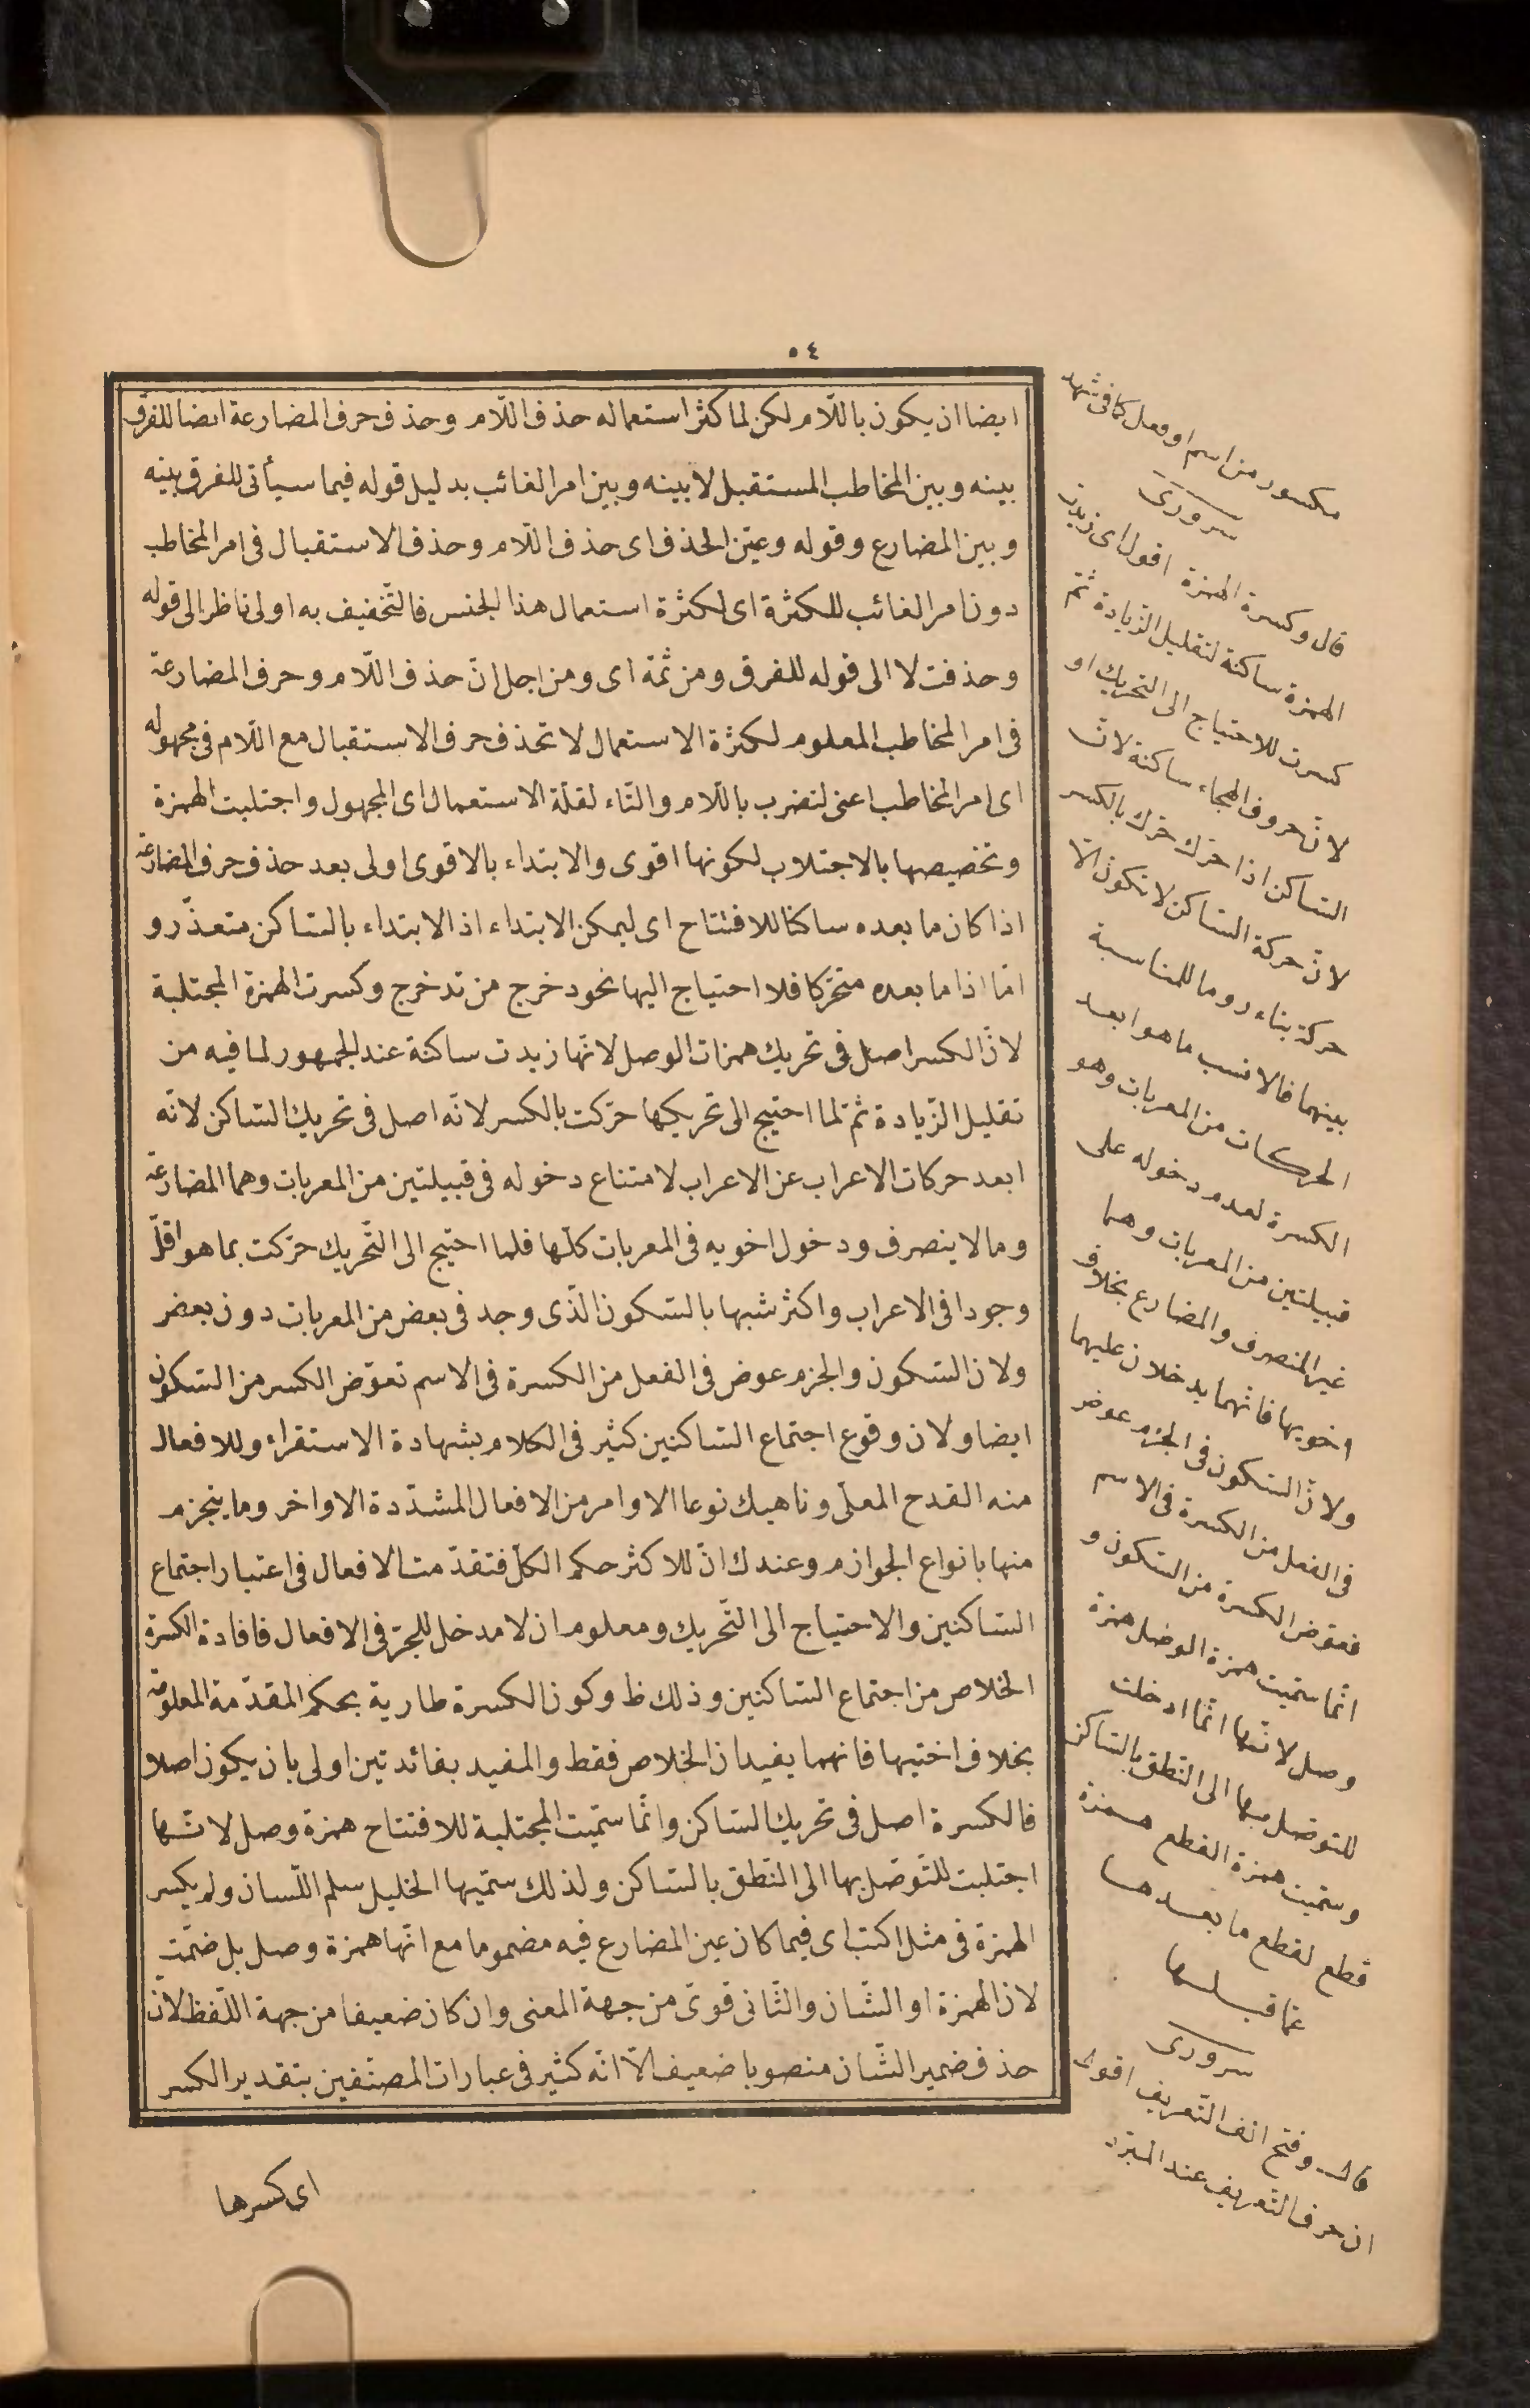 ٥٤
ايضا ان يكون باللّام لكن لما كثر استعماله حذف اللّام وحذف حرف المضارعة ايضا للفرق
بينه وبين المخاطب المستقبل لا بينه وبين امر الغائب بدليل قوله فيما سيأتى للفرق بينه
وبين المضارع وقوله وعيّن الحذف اى حذف اللّام وحذف الاستقبال فى امر المخاطب
دون امر الغائب للكثرة اى لكثرة استعمال هذا الجنس فالتّخفيف به اولى ناظر الى قوله
وحذفت لا الى قوله للفرق ومن ثمّة اى ومن اجل انّ حذف اللّام وحرف المضارعة
فى امر المخاطب المعلوم لكثرة الاستعمال لا تحذف حرف الاستقبال مع اللّام فى مجهوله
اى امر المخاطب اعنى لتضرب باللّام والتّاء لقلّة الاستعمال اى المجهول واجتلبت الهمزة
وتخصيصها بالاجتلاب لكونها اقوى والابتداء بالاقوى اولى بعد حذف حرف المضارعة
اذا كان ما بعده ساكنا للافتتاح اى ليمكن الابتداء اذ الابتداء بالسّاكن متعذّر و
امّا اذا ما بعده متحرّكا فلا احتياج اليها نحو دخرج من تدخرج وكسرت الهمزة المجتلبة
لانّ الكسر اصل فى تحريك همزات الوصل لانّها زيدت ساكنة عند الجمهور لما فيه من
تقليل الزّيادة ثمّ لما احتيج الى تحريكها حرّكت بالكسر لانّه اصل فى تحريك السّاكن لانّه
ابعد حركات الاعراب عن الاعراب لامتناع دخوله فى قبيلتين من المعربات وهما المضارعة
وما لا ينصرف ودخول اخويه فى المعربات كلّها فلما احتيج الى التّحريك حرّكت بما هو اقلّ
وجودا فى الاعراب واكثر شبها بالسّكون الّذى وجد فى بعض من المعربات دون بعض
ولان السّكون والجزم عوض فى الفعل من الكسرة فى الاسم تعوّض الكسر من السّكون
ايضا ولان وقوع اجتماع السّاكنين كثير فى الكلام بشهادة الاستقراء وللافعال
منه القدح المعلّى وناهيك نوعا الاوامر من الافعال المشدّدة الاواخر وما ينجزم
منها بانواع الجوازم وعندك انّ للاكثر حكم الكلّ فتقدّمت الافعال فى اعتبار اجتماع
السّاكنين والاحتياج الى التّحريك ومعلوم ان لا مدخل للجرّ فى الافعال فافادة الكسرة
الخلاص من اجتماع السّاكنين وذلك ظ وكون الكسرة طارية بحكم المقدّمة المعلومة
بخلاف اختيها فانهما يفيدان الخلاص فقط والمفيد بفائدتين اولى بان يكون اصلا
فالكسرة اصل فى تحريك السّاكن وانّما سمّيت المجتلبة للافتتاح همزة وصل لانّها
اجتلبت للتّوصّل بها الى النّطق بالسّاكن ولذلك سمّيها الخليل سلم اللّسان ولم يكسر
الهمزة فى مثل اكتب اى فيما كان عين المضارع فيه مضموما مع انّها همزة وصل بل ضمّت
لان الهمزة او الشّان والثّانى قوىّ من جهة المعنى وان كان ضعيفا من جهة اللّفظ لانّ
حذف ضمير الشّان منصوبا ضعيف الّا انّه كثير فى عبارات المصنّفين بتقدير الكسر
اى كسرها
مكسور من اسم او فعل كما فى شهد
سرورى
قال وكسرة الهمزة اقول اى زيدن
الهمزة ساكنة لتقليل الزّيادة ثمّ
كسرت للاحتياج الى التّحريك او
لانّ حروف الهجاء ساكنة لانّ
السّاكن اذا حرّك حرّك بالكسر
لانّ حركة السّاكن لا تكون الّا
حركة بناء روما للمناسبة
بينهما فالانسب ما هو ابعد
الحركات من المعربات وهو
الكسرة لعدم دخوله على
قبيلتين من المعربات وهما
غير المنصرف والمضارع بخلاف
اخويها فانّهما يدخلان عليهما
ولانّ السّكون فى الجزم عوض
فى الفعل من الكسرة فى الاسم
فعوّض الكسرة من السّكون و
انّما سمّيت همزة الوصل همزة
وصل لانّها انّما ادخلت
للتوصّل بها الى النّطق بالسّاكن
وسمّيت همزة القطع همزة
قطع لقطع ما بعدها
عمّا قبلها
سرورى
قال وفتح الف التّعريف اقول
ان حرف التّعريف عند المبرّد